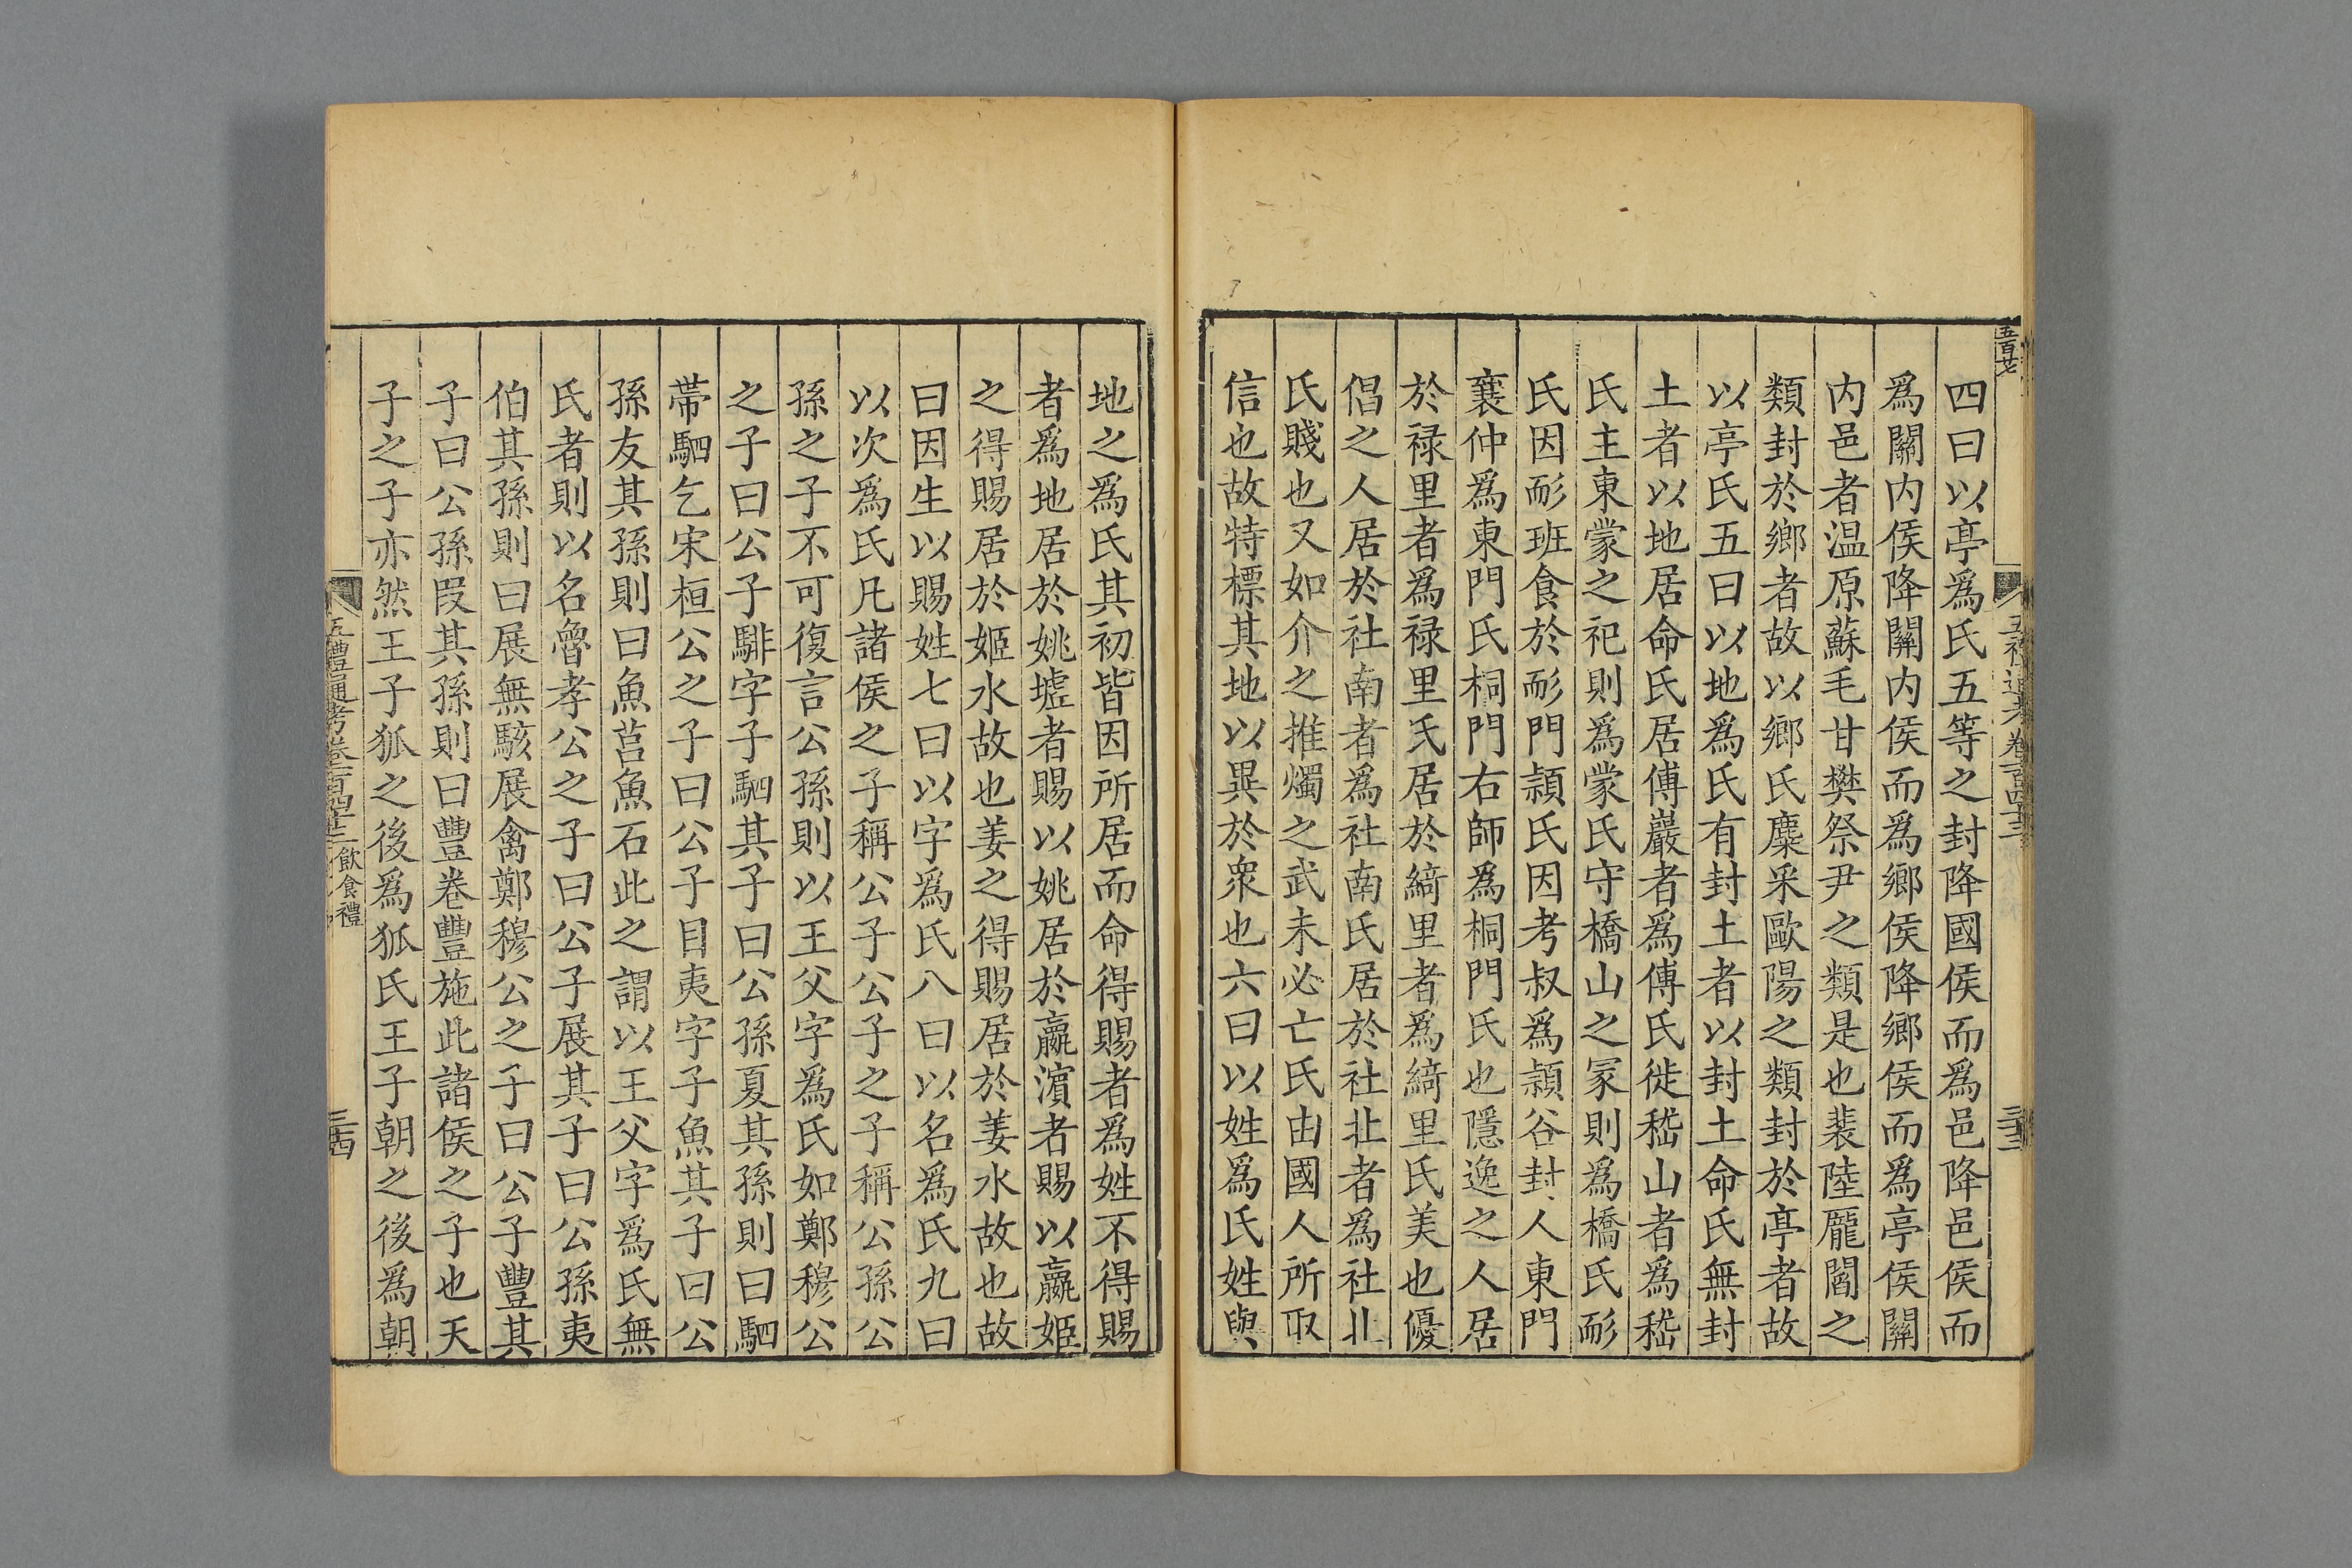 四曰以亭爲氏五等之封降國侯而爲邑降邑侯而
爲關内侯降關内侯而爲鄉侯降鄉侯而爲亭侯關
内邑者温原蘇毛甘樊祭尹之類是也裴陸龎閻之
類封於鄉者故以鄉氏麋采歐陽之類封於亭者故
以亭氏五曰以地爲氏有封土者以封土命氏無封
土者以地居命氏居傅巖者爲傅氏徙嵇山者爲嵇
氏主東蒙之祀則爲蒙氏守橋山之冡則爲橋氏耏
氏因耏班食於耏門潁氏因考叔爲潁谷封人東門
襄仲爲東門氏桐門右師爲桐門氏也隱逸之人居
於禄里者爲禄里氏居於綺里者爲綺里氏美也優
倡之人居於社南者爲社南氏居於社北者爲社北
氏賤也又如介之推燭之武未必亡氏由國人所取
信也故特標其地以異於衆也六曰以姓爲氏姓與
地之爲氏其初皆因所居而命得賜者爲姓不得賜
者爲地居於姚墟者賜以姚居於嬴濱者賜以嬴姬
之得賜居於姬水故也姜之得賜居於姜水故也故
曰因生以賜姓七曰以字爲氏八曰以名爲氏九曰
以次爲氏凡諸侯之子稱公子公子之子稱公孫公
孫之子不可復言公孫則以王父字爲氏如鄭穆公
之子曰公子騑字子駟其子曰公孫夏其孫則曰駟
帶駟乞宋桓公之子曰公子目夷字子魚其子曰公
孫友其孫則曰魚莒魚石此之謂以王父字爲氏無
氏者則以名魯孝公之子曰公子展其子曰公孫夷
伯其孫則曰展無駭展禽鄭穆公之子曰公子豐其
子曰公孫叚其孫則曰豐卷豐施此諸侯之子也天
子之子亦然王子狐之後爲狐氏王子朝之後爲朝
五禮通考卷一百四十三 飲食禮
三四